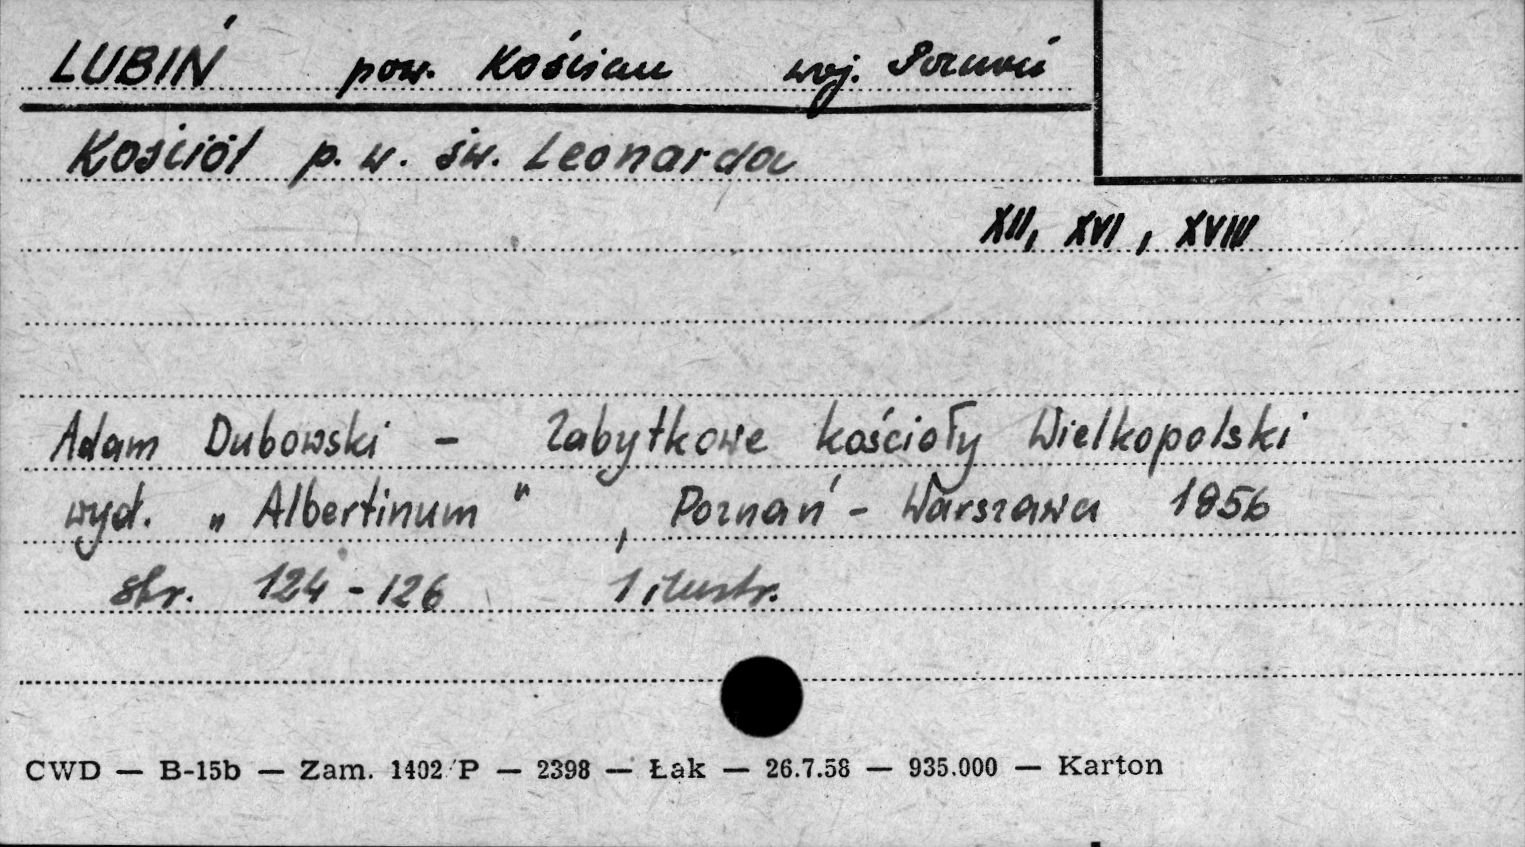 LUBIŃ pow. Kościan woj. Poznań
Kościół p. w. św. Leonarda
XII, XVI, XVIII
Adam Dubowski - Zabytkowe kościoły Wielkopolski
wyd. „Albertinum", Poznań - Warszawa 1956
str. 124-126 1 ilustr.
CWD — B-15b — Zam. 1402 P — 2398 — Łak — 26.7.58 — 935.000 — Karton